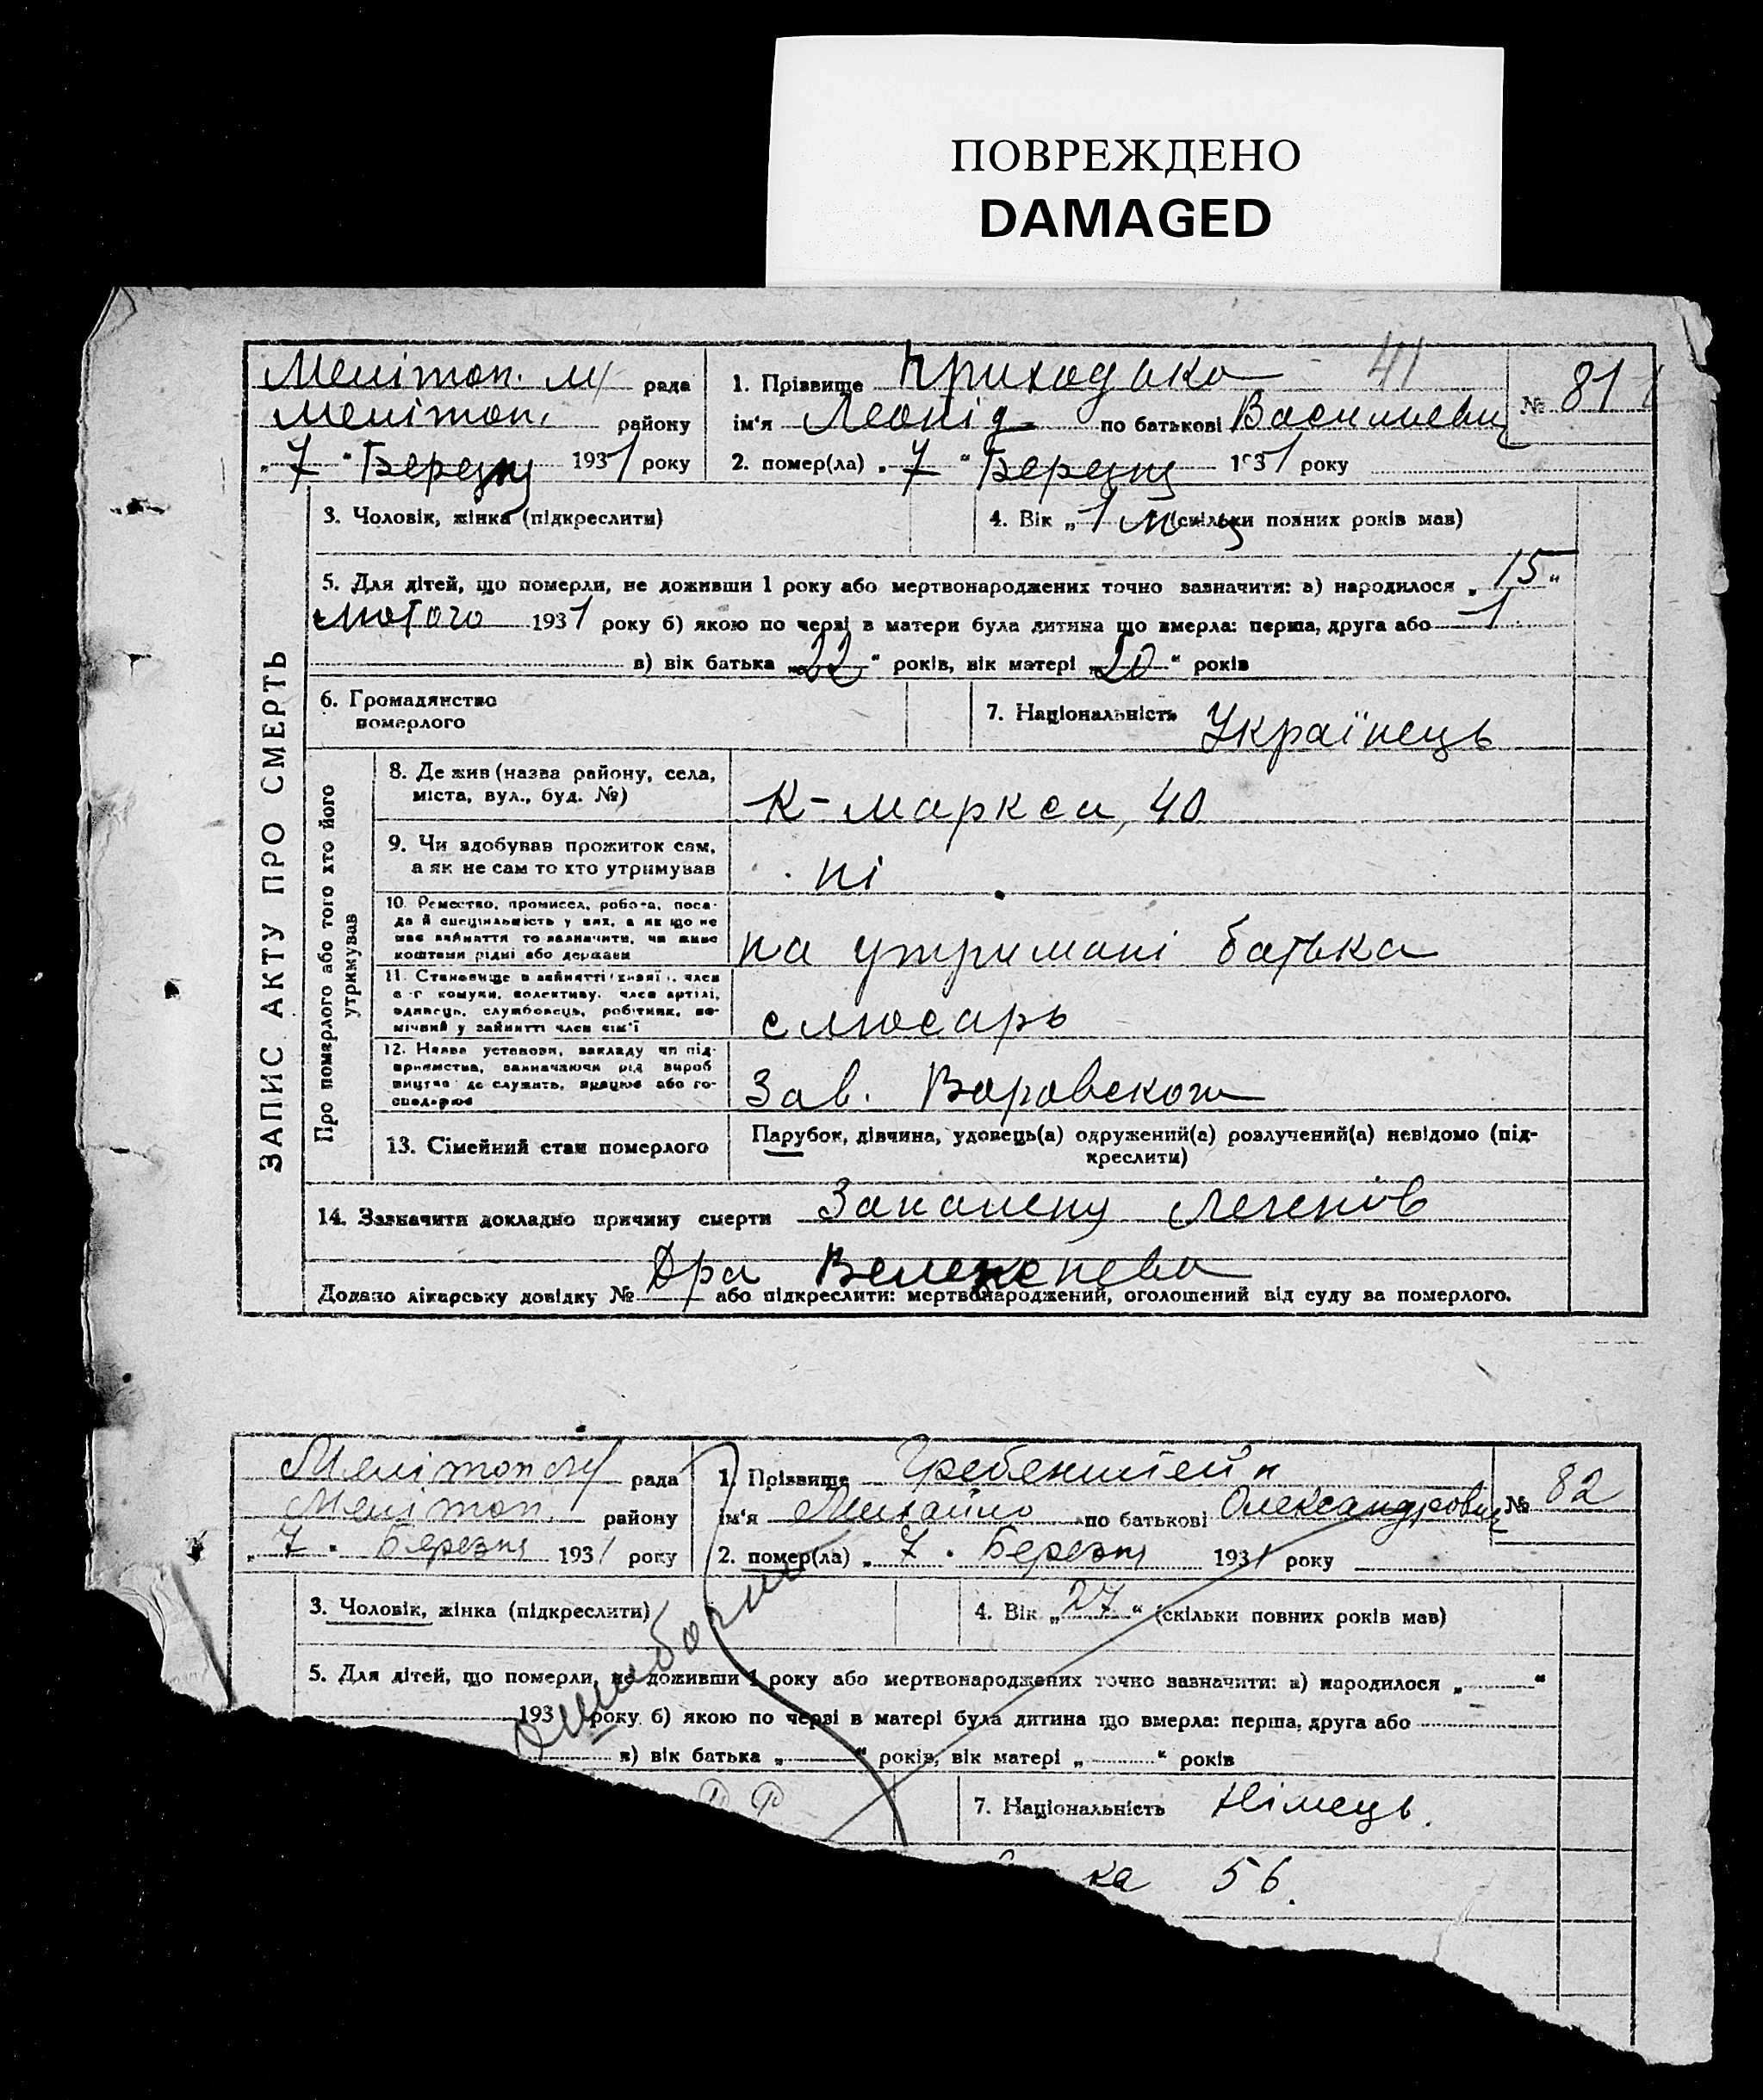 ПОВРЕЖДЕНО
DAMAGED
Меліттоп. м/ рада
Меліттоп. району
„ 7 " Березня 1931 року
1. Прізвище Приходько 41
ім'я Леонід по батькові Васильевич
2. помер(ла) „ 7 " Березня 1931 року
№ 81
ЗАПИС АКТУ ПРО СМЕРТЬ
3. Чоловік, жінка (підкреслити)
4. Вік „ 1 м-ць (скільки повних років мав)
5. Для дітей, що померли, не доживши 1 року або мертвонароджених точно зазначити: а) народилося „ 15 "
лютого 1931 року б) якою по черзі в матери була дитина що вмерла: перша, друга або 1
в) вік батька „ 22 " років, вік матері „ 20 " років
6. Громадянство
померлого
7. Національність Українець
Про померлого або того хто його
утримував
8. Де жив (назва району, села,
міста, вул., буд. №)
К-маркса, 40
9. Чи здобував прожиток сам,
а як не сам то хто утримував
ні
10. Ремество, промисел, робота, поса-
да й спеціальність у них, а як що не
має зайняття то зазначити, чи живе
коштами рідні або держави
на утримані батька
11. Становище в зайнятті (хазяїн, член
с-г комуни, колективу, член артілі,
одинець, службовець, робітник, по-
мічний у зайнятті член сім'ї
слюсарь
12. Назва установи, закладу чи під-
приємства, зазначаючи рід вироб
ництва де служить, працює або го-
сподарює
Зав. Воровского
13. Сімейний стан померлого
Парубок, дівчина, удовець(а) одружений(а) розлучений(а) невідомо (під-
креслити)
14. Зазначити докладно причину смерти Запаленя легенів
Дра
Додано лікарську довідку № або підкреслити: мертвонароджений, оголошений від суду за померлого.
Мелітоп м/ рада
Мелітоп. району
„ 7 " Березня 1931 року
1. Прізвище Гребенштейн
ім'я Михайло по батькові Олександрович
2. помер(ла) „ 7 " Березня 1931 року
№ 82
3. Чоловік, жінка (підкреслити)
4. Вік „ 27 " (скільки повних років мав)
5. Для дітей, що померли, не доживши 1 року або мертвонароджених точно зазначити: а) народилося „ "
193 року б) якою по черзі в матері була дитина що вмерла: перша, друга або
в) вік батька „ " років, вік матері „ " років
7. Національність Німець.
ка 56.